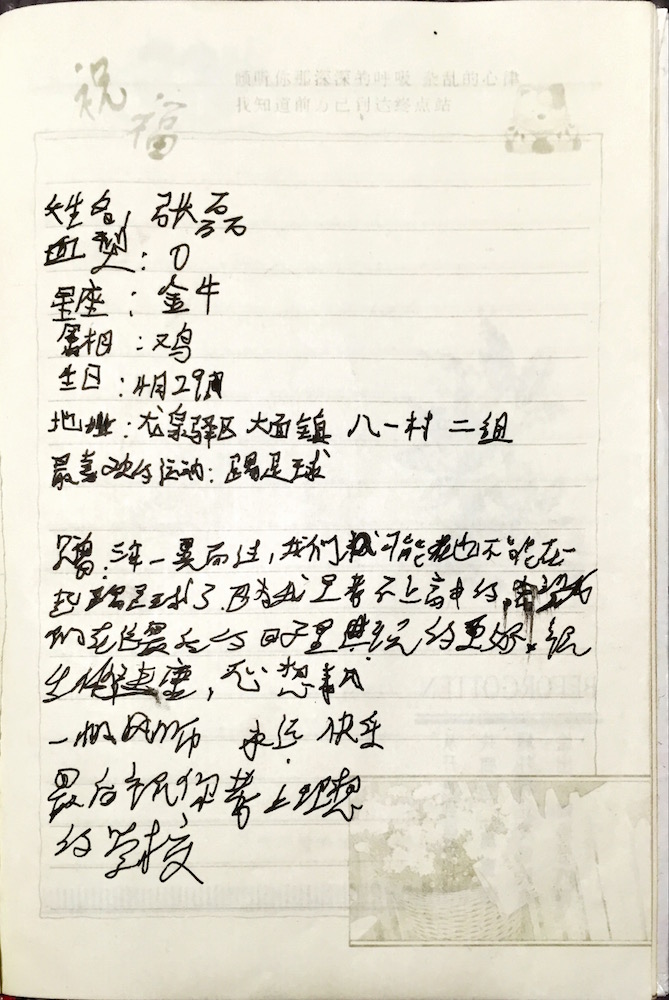 祝福
倾听你那深深的呼吸 杂乱的心律
我知道前方已到达终点站
姓名：张磊
血型：O
星座：金牛
属相：鸡
生日：4月29日
地址：龙泉驿区 大面镇 八一村 二组
最喜欢的运动：踢足球
三年一晃而过，我们可能也不能在一
起踢足球了，因为我是考不上高中的，
们在这最后的日子里 的更好！祝
生体健康，心想事成
一帆风顺 永远快乐
最后祝你考上理想
的学校